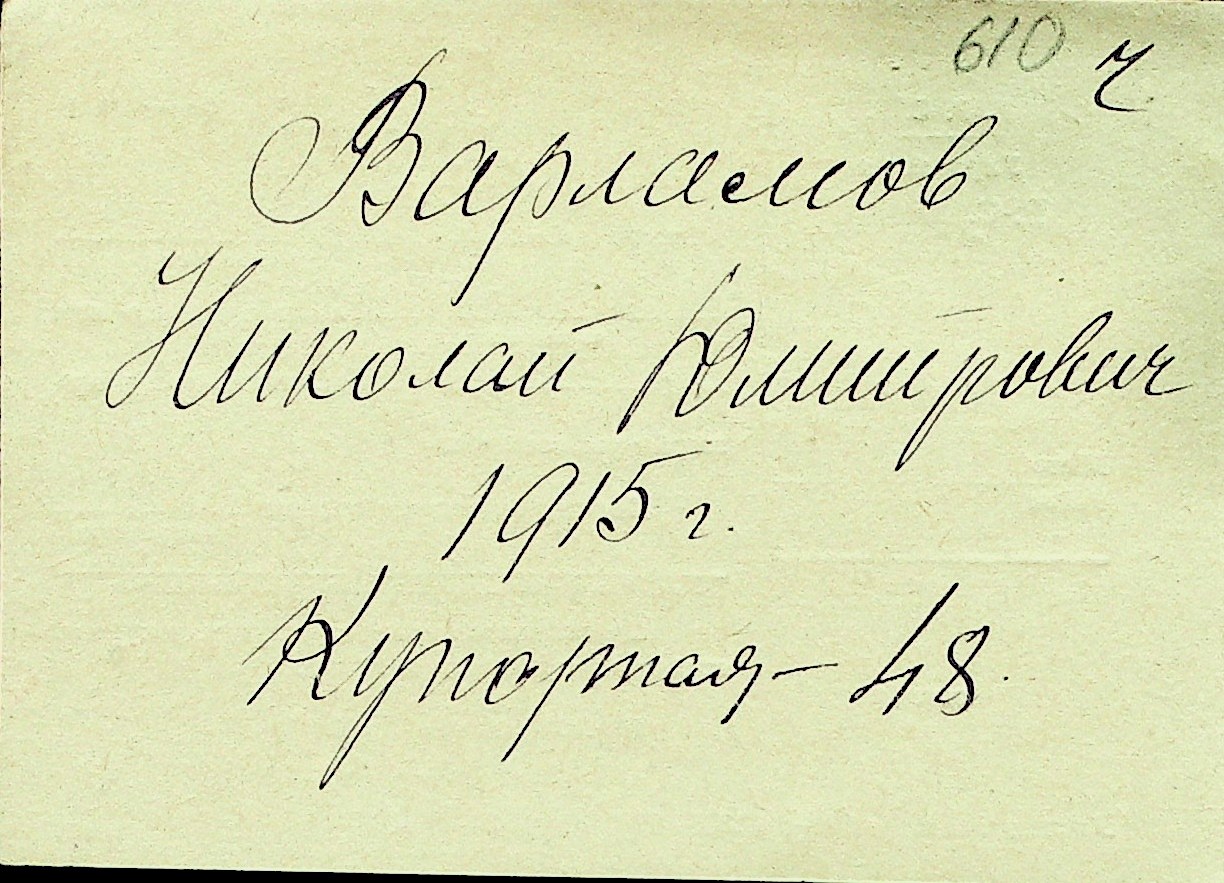 610 ч
Варламов
Николай Дмитрович
1915 г.
Купортая - 48.